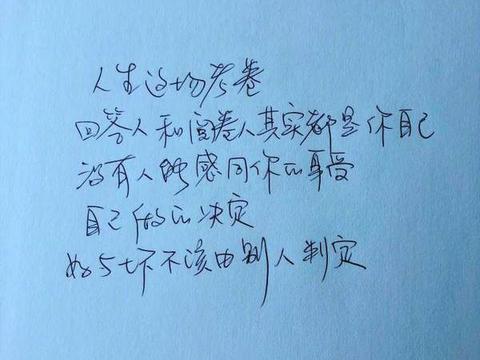 人生这场考卷
回答人和阅卷人其实都是你自己
没有人能感同你的享受
自己做的决定
好与坏不该由别人判定